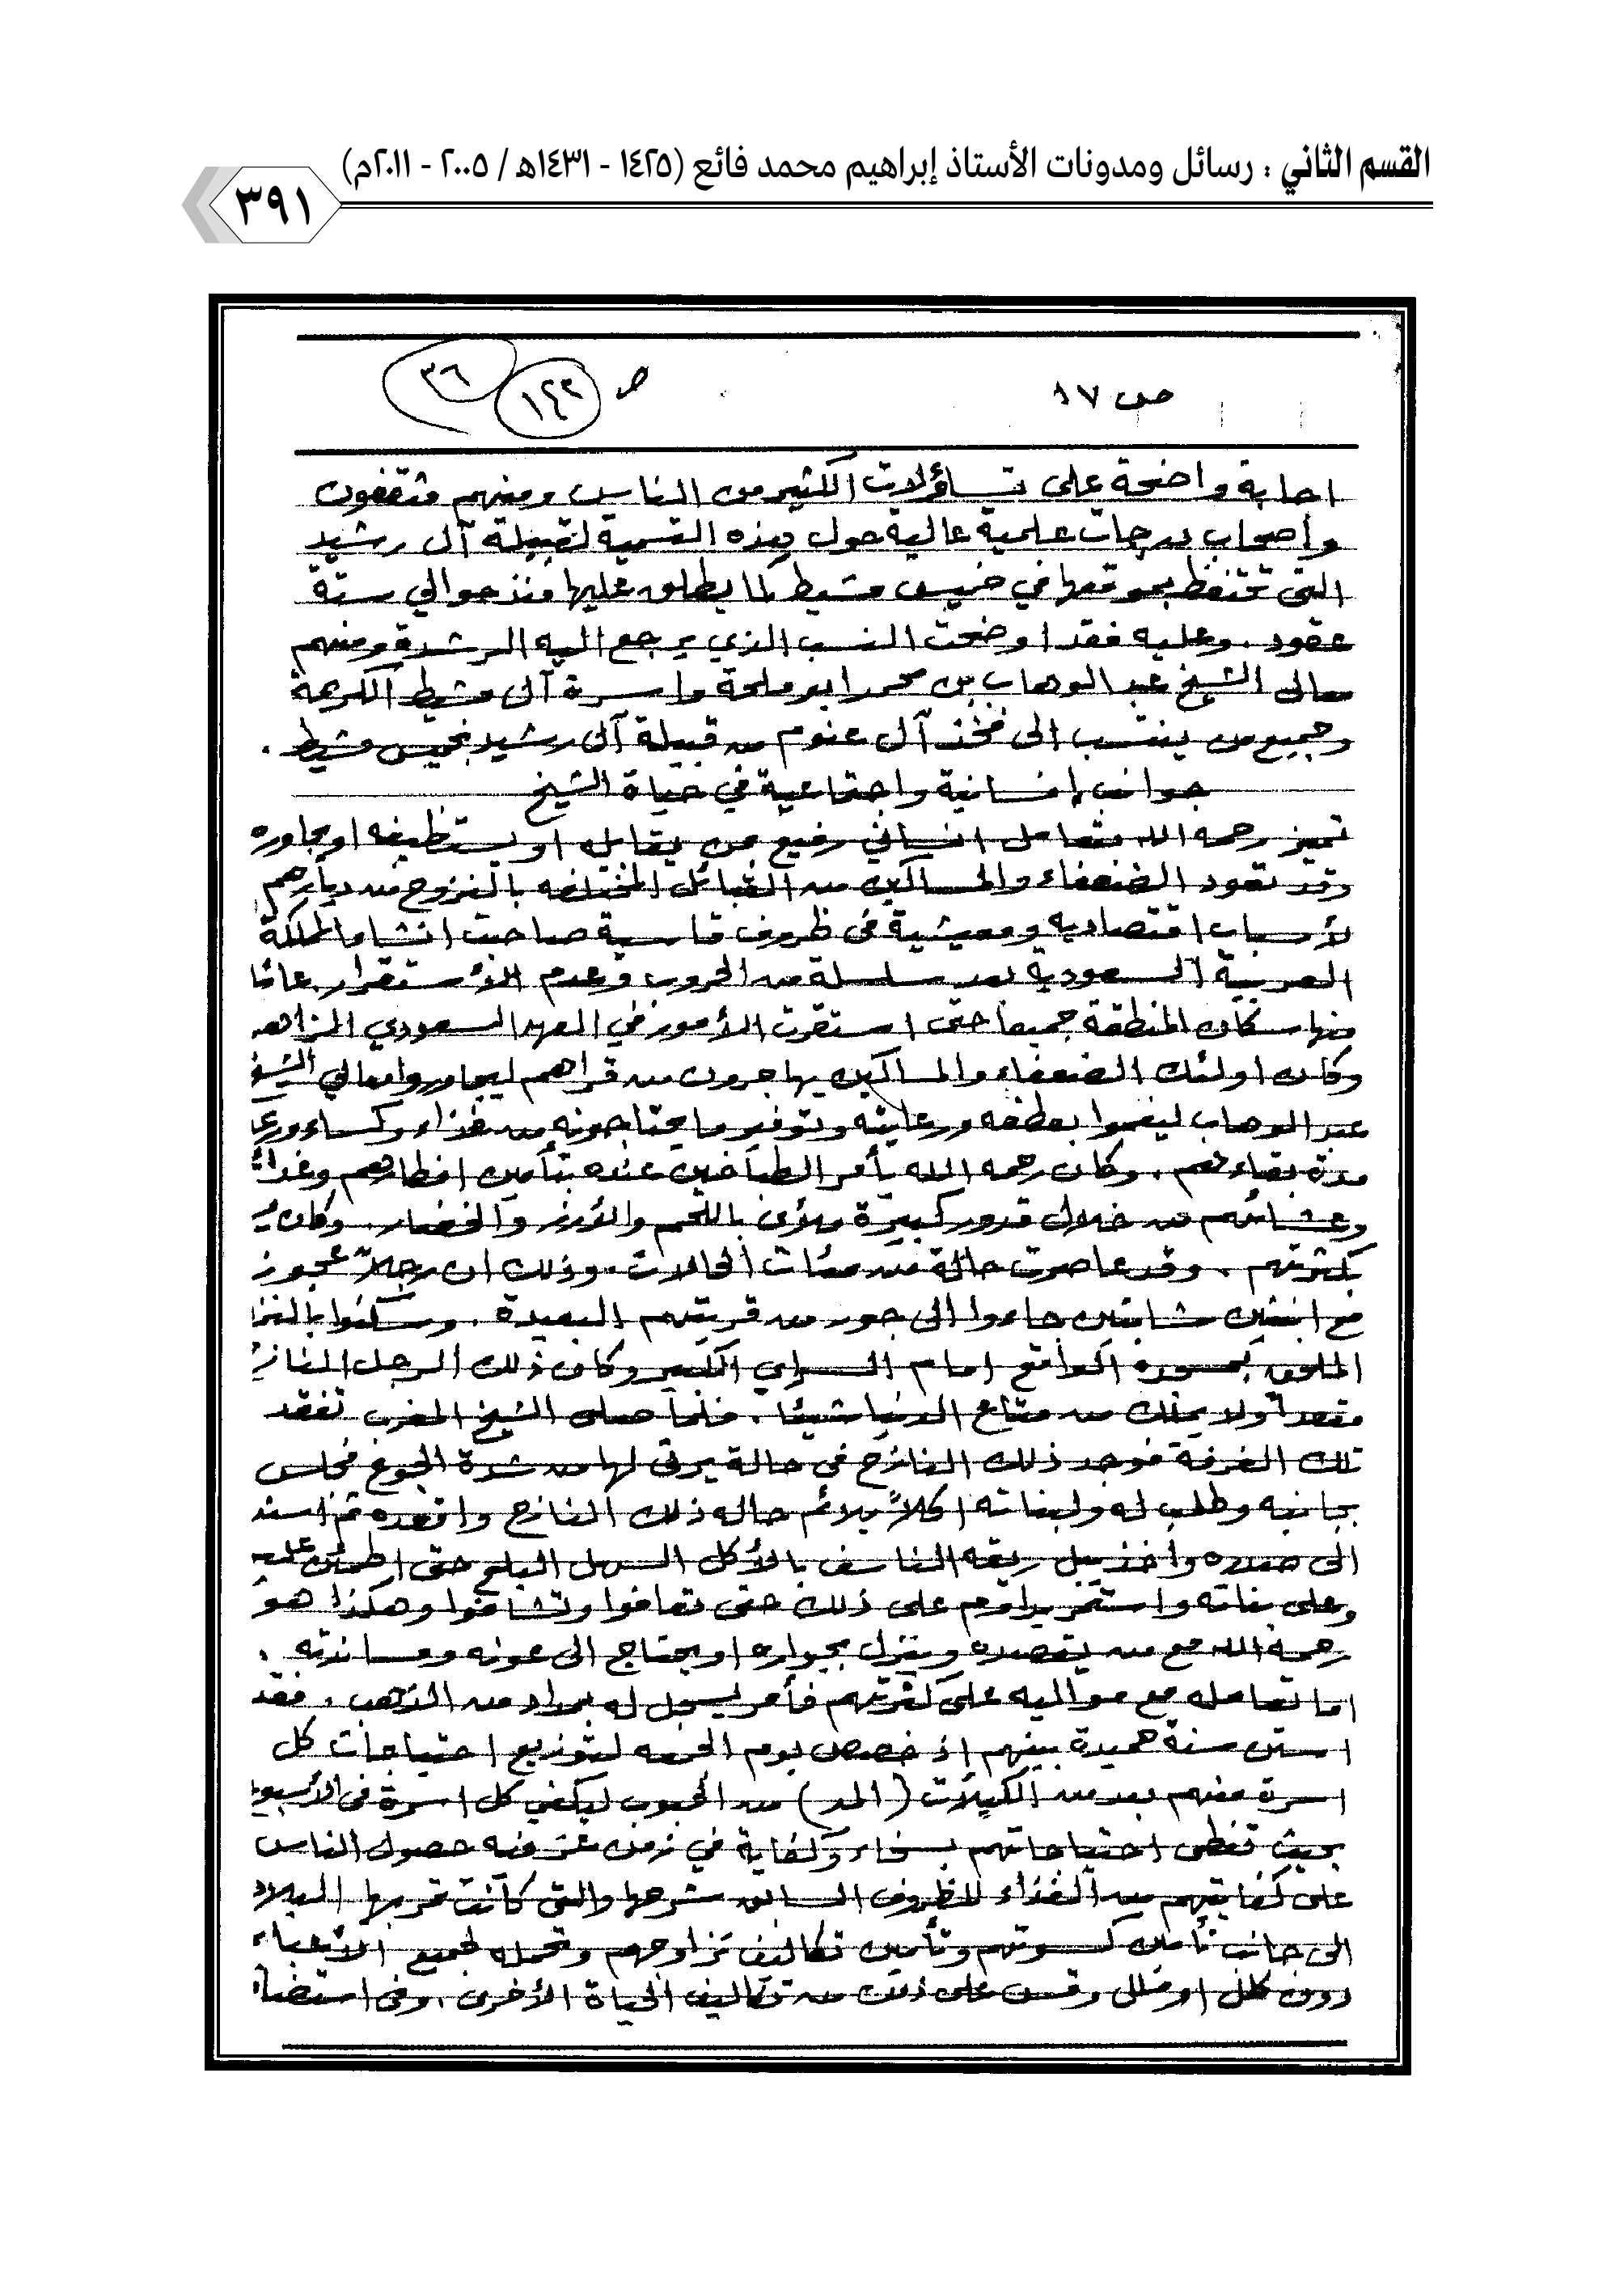 القسم الثاني : رسائل ومدونات الأستاذ إبراهيم محمد فائع (١٤٢٥ - ١٤٣١هـ / ٢٠٠٥ - ٢٠١١م)
٣٩١
ص ١٧ ص ١٤٢ ٣٦
اجابة واضحة على تساؤلات الكثير من الناس ومنهم مثقفون
وأصحاب درجات علمية عالية حول هذه التسمية لقبيلة آل رشيد
التي تحتفظ بموقعها في خميس مشيط كما يطلق عليها منذ حوالي ستة
عقود . وعليه فقد اوضحت النسب الذي يرجع اليه الرشدة ومنهم
معالى الشيخ عبد الوهاب بن محمد ابو ملحة واسرة آل مشيط الكريمة
وجميع من ينتسب الى فخذ آل عنوم من قبيلة آل رشيد بخميس مشيط .
جوانب إنسانية واجتماعية في حياة الشيخ
تميز رحمه الله بتعامل انساني رفيع بمن يقابله او يستضيفه او يجاوره
وقد تعود الضعفاء والمساكين من القبائل المختلفه بالنزوح من ديارهم
لأسباب اقتصاديه ومعيشية في ظروف قاسية صاحبت انشاء المملكة
العربية السعودية بعد سلسلة من الحروب وعدم الأستقرار عانا
منها سكان المنطقة جميعاً حتى استقرت الأمور في العهد السعودي الزاهد
وكان اولئك الضعفاء والمساكين يهاجرون من قراهم ليجاوروا معالي الشيخ
عبد الوهاب لينعموا بعطفه ورعايته وتوفير ما يحتاجونه من غذاء وكساء
مدة بقاءهم . وكان رحمه الله يأمر الطباخين عنده بتأمين افطارهم
وعشائهم من خلال قدور كبيرة ملأى باللحم والأرز والخضار . وكان
بكثرتهم . وقد عاصرت حالة من مئات الحالات . وذلك ان رجلاً عجوز
مع ابنتين شابتين جاءوا الى جور من قريتهم البعيدة . وسكنوا
الملحق بمسجده الواقع امام السراي الكبير وكان ذلك الرجل
مقعداً ولا يملك من متاع الدنيا شيئا . فلما صلى الشيخ المغرب تفقد
تلك الغرفة فوجد ذلك النازح في حالة يرثى لها من شدة الجوع فجلس
بجانبه وطلب له ولبناته اكلاً يلائم حاله ذلك النازح واقعده ثم اسند
الى صدره وأخذ يبل ريقه الناشف بالأكل السهل البلع حتى اطمئن عليه
وعلى بناته واستمر يداوم على ذلك حتى تعافوا وتشافوا وهكذا هو
رحمه الله مع من يقصده وينزل بجواره او يحتاج الى عونه ومساندته .
اما تعامله مع مواليه على كثرتهم فأمر يسجل له بمداد من الذهب . فقد
استن سنة حميدة بينهم إذ خصص يوم الجمعه لتوزيع احتياجات كل
اسرة منهم بعدد من الكيلات ( المد ) من الحبوب ليكفي كل اسرة في
بحيث تغطى احتياجاتهم بسخاء وكفاية في زمن عز فيه حصول الناس
على كفايتهم من الغذاء للظروف السابق شرحها والتى كانت تمر بها البلاد
الى جانب تأمين كسوتهم وتأمين تكاليف تزاوجهم وتحمله لجميع الأعباء
دون كلل او ملل وقس على ذلك من تكاليف الحياة الأخرى . وفى